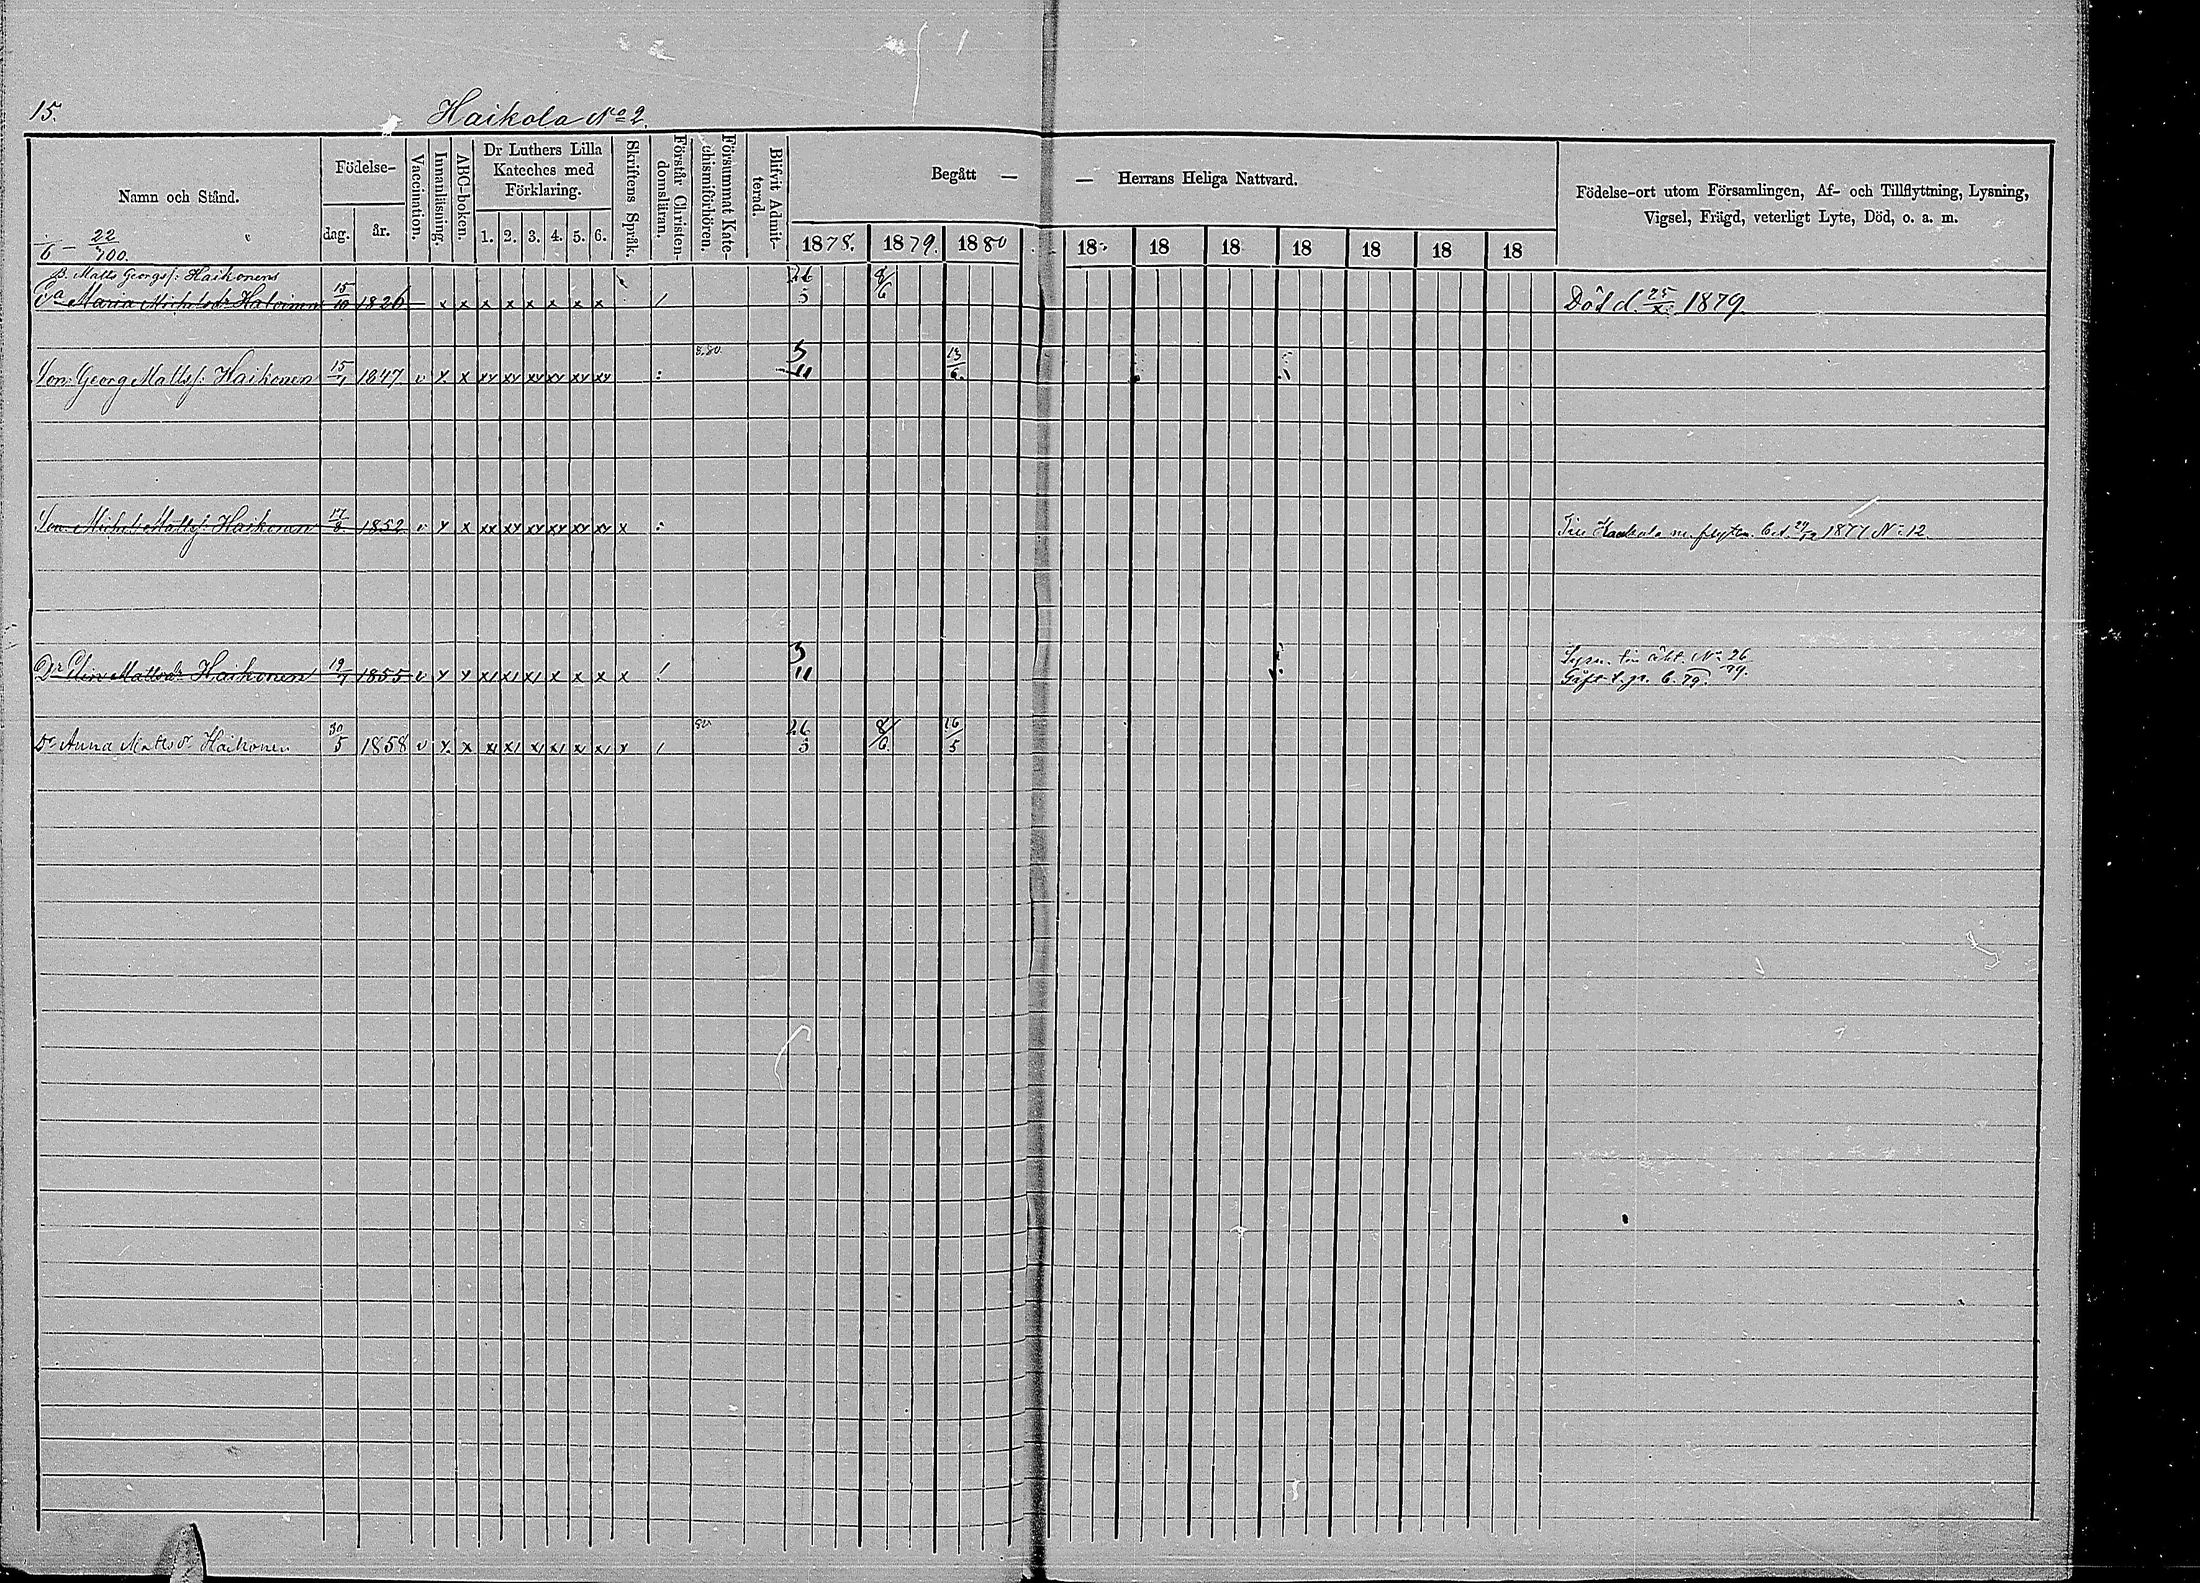 15.
Haikola No 2.
Namn och Stånd.
Födelse-
dag.
år.
Vaccination.
Innanläsning.
ABC-boken.
Dr Luthers Lilla
Kateches med
Förklaring.
1. 2. 3. 4. 5. 6.
Skriftens Språk.
Förstår Christen-
domsläran.
Försummat Kate-
chismiförhören.
Blifvit Admit-
terad.
Begått — — Herrans Heliga Nattvard.
1878. 1879. 1880 18 18 18 18 18 18 18
Födelse-ort utom Församlingen, Af- och Tillflyttning, Lysning,
Vigsel, Frägd, veterligt Lyte, Död, o. a. m.
22
6 100.
B. Matts Georgs f: Haikonens
Maria Michelsdr 15/10 1826 x x x x x x x x / 26/5 8/6 Död d. 25/X 1879.
Son Georg Matts f: Haikonen 15/1 1847 v x x xx xx xx xx xx xx 3/11 13/6.
Son Michel Matts f: Haikonen 17/8 1852 v x x xx xx xx xx xx xx x 1877 No 12
Dr Elin Mattsdr Haikonen 19/1 1855 v x x x x x x / 3/11 Lysn. No 26
79.
Dr Anna Mattsdr Haikonen 30/5 1858 v x x x / 80 26/5 8/6 16/5